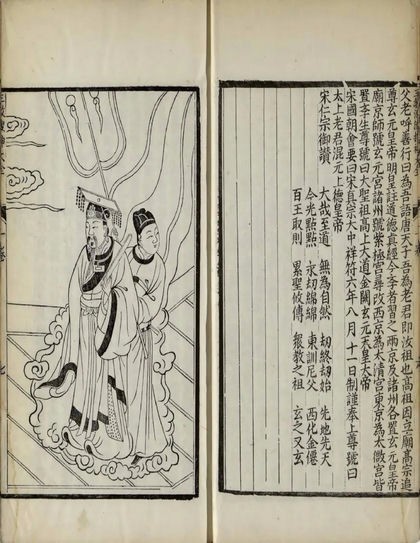 父老呼善行曰為吾語唐天子吾為老君即汝祖也高祖因立廟高宗追
尊玄元皇帝明皇註道德真經令學者習之兩京及諸州各置玄元皇帝
廟京師號玄元宮諸州號紫極宮尋改西京為太清宮東京為太微宮皆
置學生尊號曰大聖祖高上大道金闕玄元天皇大帝
宋國朝會要曰宋真宗大中祥符六年八月十一日制謹奉上尊號曰
太上老君混元上德皇帝
宋仁宗御讚 大哉至道 無為自然 劫終劫始 先地先天
含光默默 永劫綿綿 東訓尼父 西化金僊
百王取則 累聖攸傳 眾教之祖 玄之又玄